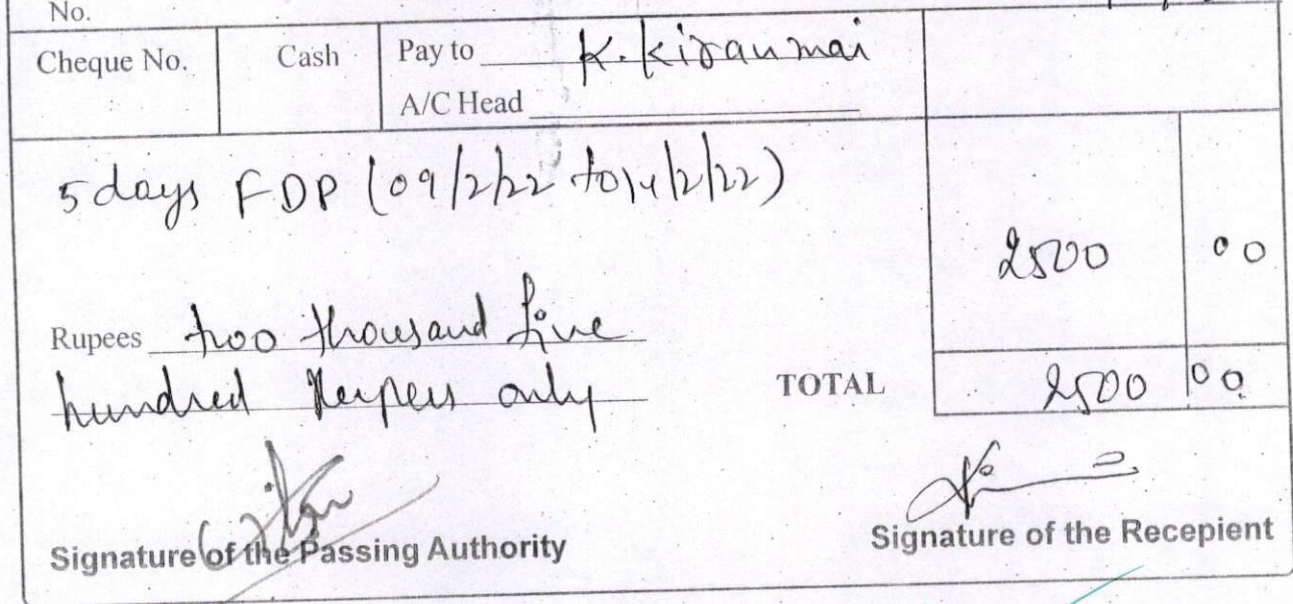 No.
Cheque No. Cash Pay to K. Kiranmai
A/C Head
5 days FDP (09/2/22 to 14/2/22)
2500 00
Rupees two thousand five
hundred Rupees only TOTAL 2500 00
Signature of the Passing Authority Signature of the Recepient